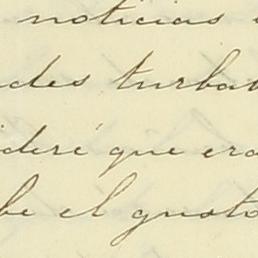 noticias
des turba
deré que era
be el gusto